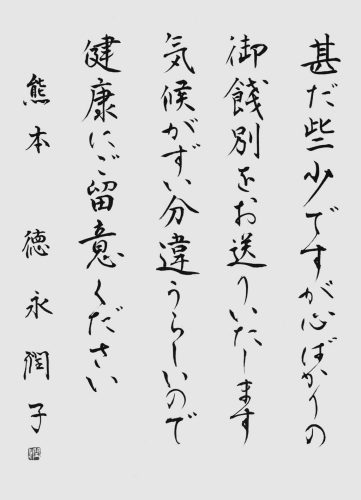 甚だ些少ですが心ばかりの
御餞別をお送りいたします
気候がずい分違うらしいので
健康にご留意ください
熊本 徳永潤子